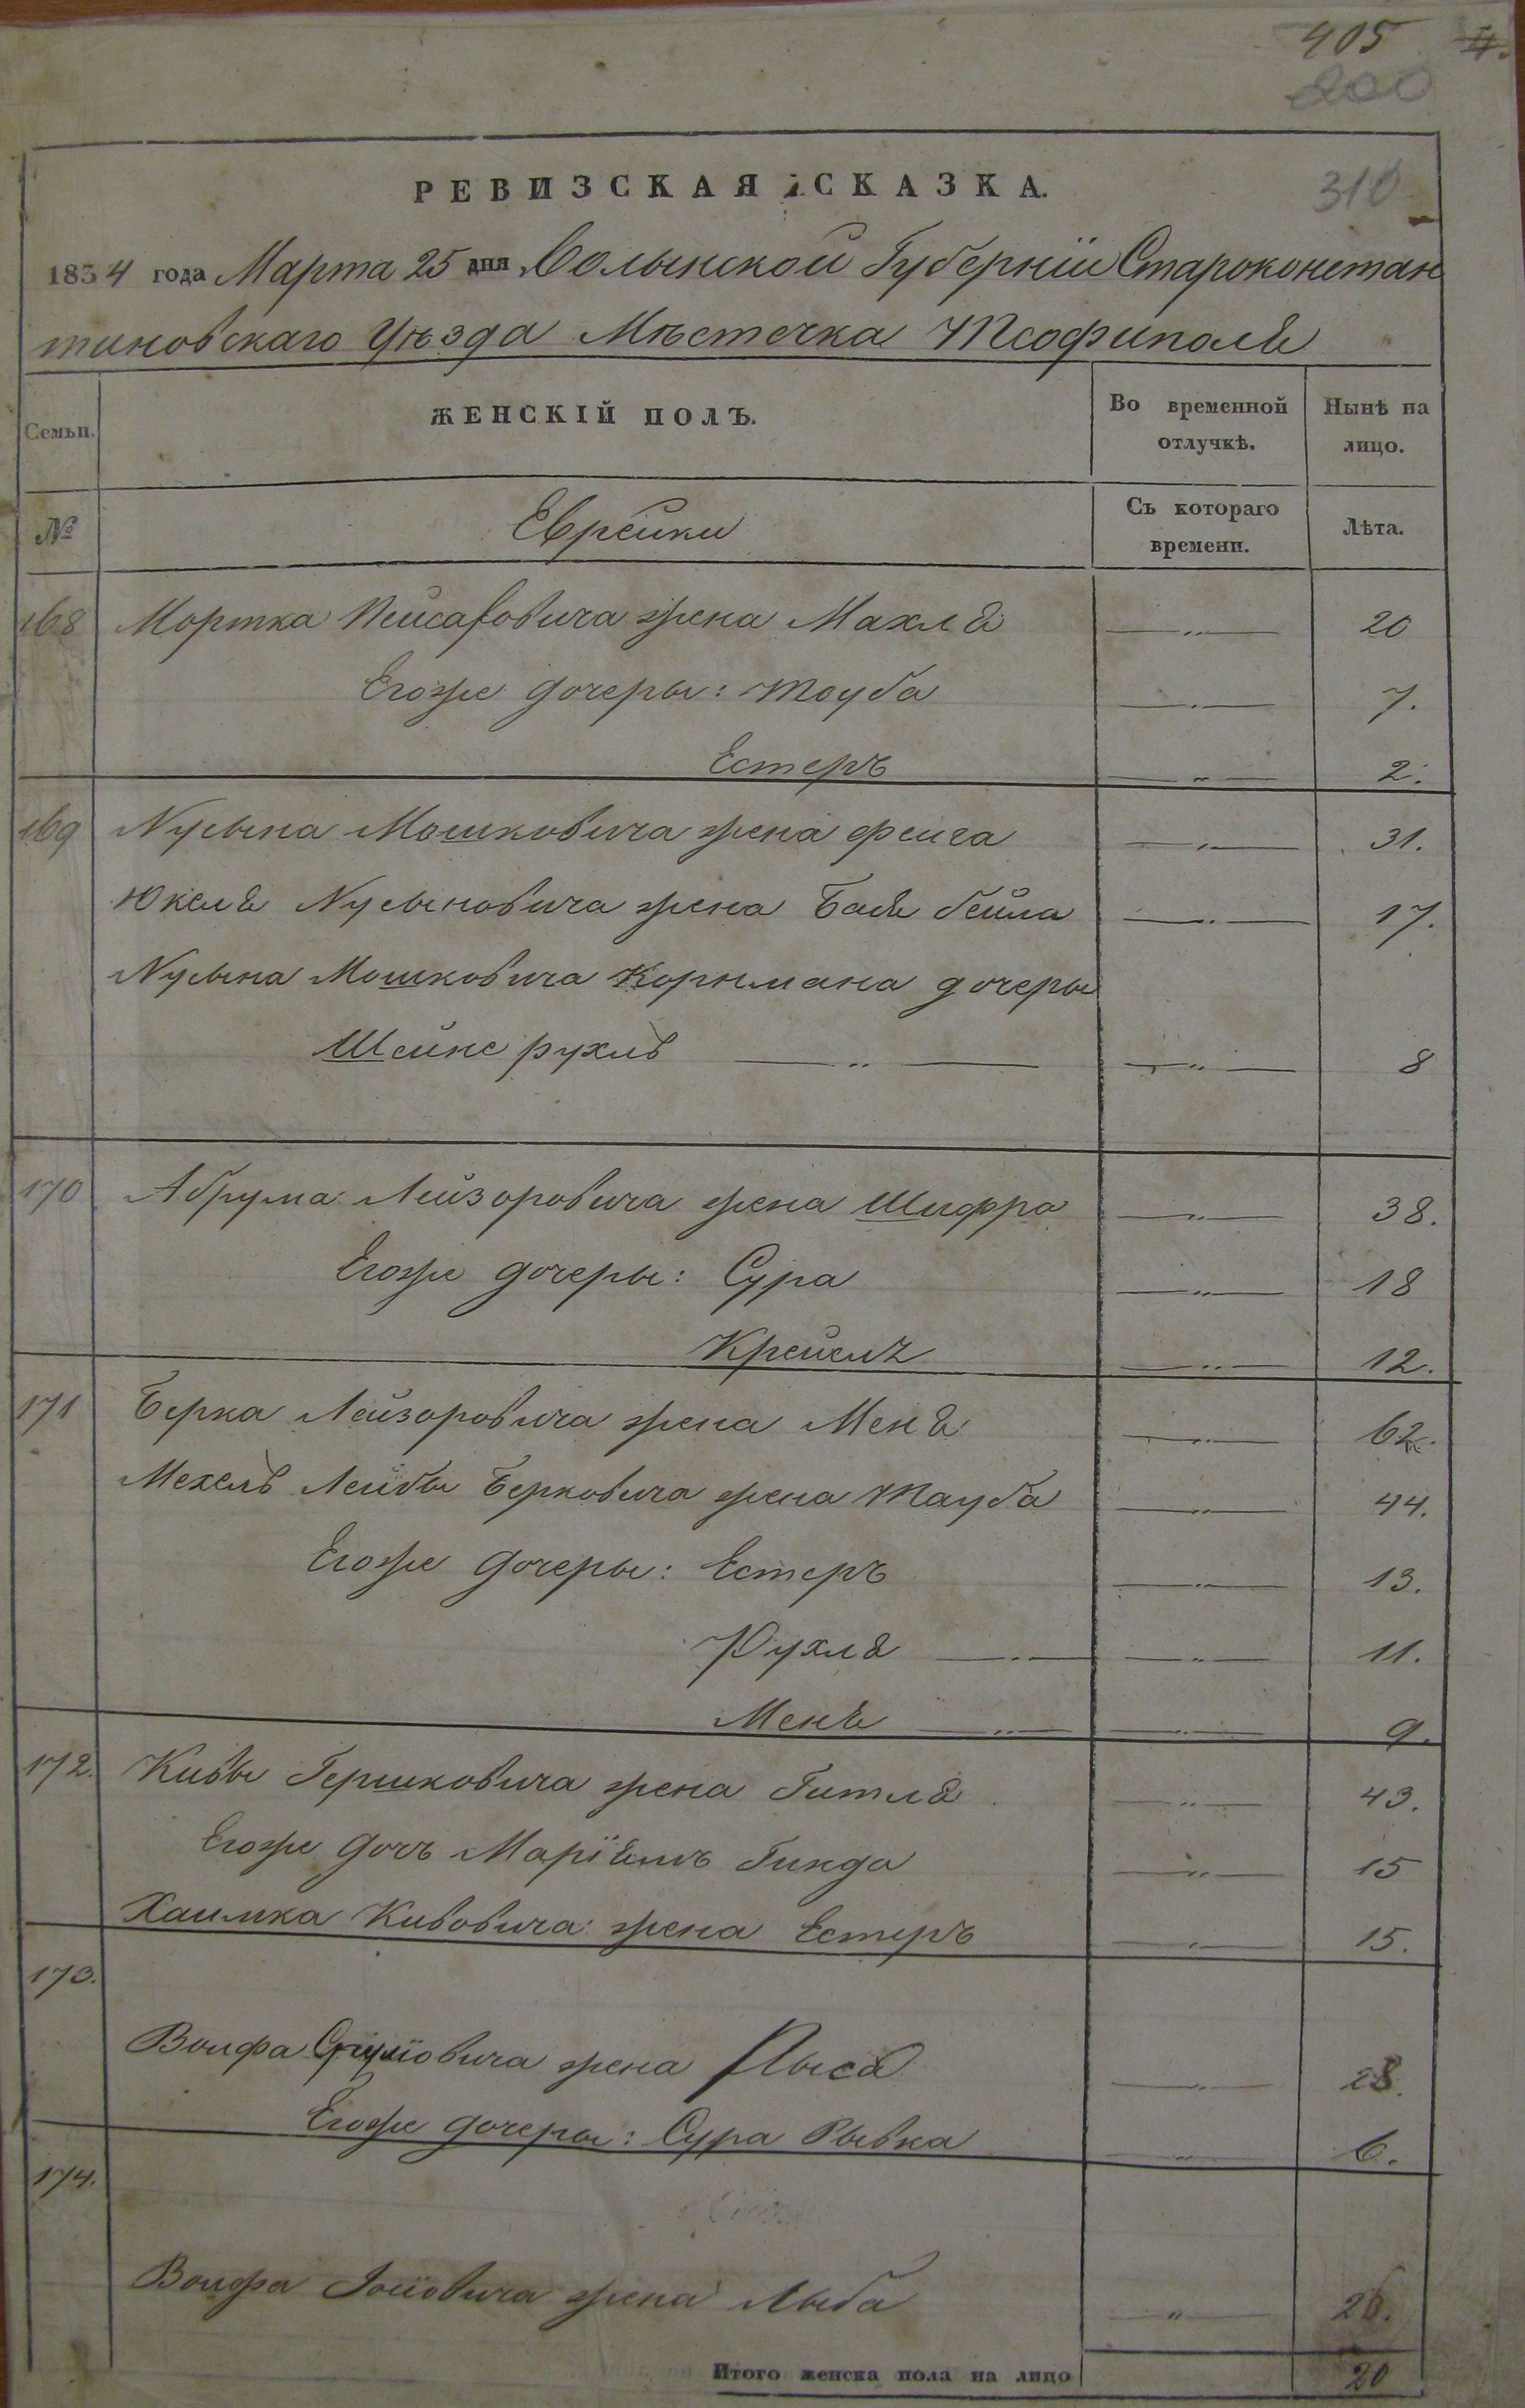 405 4.
200
РЕВИЗСКАЯ СКАЗКА.
310
1834 года Марта 25 дня Волынской Губерніи Староконстан
тиновскаго Уѣзда Мѣстечка Теофиполя
Семьи.
ЖЕНСКІЙ ПОЛЪ.
Во временной отлучкѣ.
Нынѣ на лицо.
№
Еврейки
Съ котораго времени.
Лѣта.
168 Мортка Пейсаховича жена Махля 20
Егоже дочеры: Тоуба 7.
Естеръ 2.
169 Нусына Мошковича жена фейга 31.
Юкеля Нусыновича жена Бася бейла 17.
Нусына Мошковича Корнмана дочеры
Шейне рухль 8
170 Абрума Лейзоровича жена Шифра 38.
Егоже дочеры: Сура 18
Крейслъ 12.
171 Берка Лейзоровича жена Меня 62.
Мехель Лейбы Берковича жена Тауба 44.
Егоже дочеры: Естеръ 13.
Рухля 11.
Меня 9.
172. Кивы Гершковича жена Гитля 43.
Егоже дочъ Маріемъ Гинда 15
Хаимка Кивовича жена Естеръ 15.
173.
Волфа жена 28.
Егоже дочеры: Сура Рывка 6.
174.
Волфа Іосіовича жена Лыба 26.
Итого женска пола на лицо 20